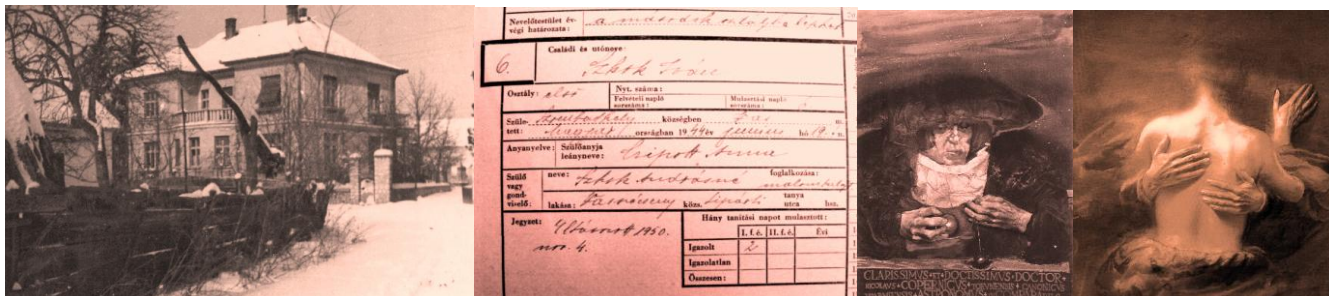 Nevelőtestület év-
végi határozata: a második osztályba léphet
6.
Családi és utóneve:
Szkok Iván
Osztály: első
Nyt. száma:
Felvételi napló
sorszáma:
Mulasztási napló
sorszáma:
Szüle-
tett:
Szombathely községben Vas m.
Magyar országban 1944 év június hó 19. n.
Anyanyelve:
Szülőanyja
leányneve: Csipott Anna
Szülő
vagy
gond-
viselő:
neve: Szkok Andrásné
foglalkozása:
lakása: község
tanya
utca hsz.
Jegyzet:
Eltávozott 1950.
nov. 4.
Hány tanítási napot mulasztott:
I. f. é. II. f. é. Évi
Igazolt 2
Igazolatlan
Összesen:
CLARISSIMVS·ET·DOCTISSIMVS·DOCTOR·
NICOLAVS·COPERNICVS·TORVNENSIS·CANONICVS
ASTRONOMVS